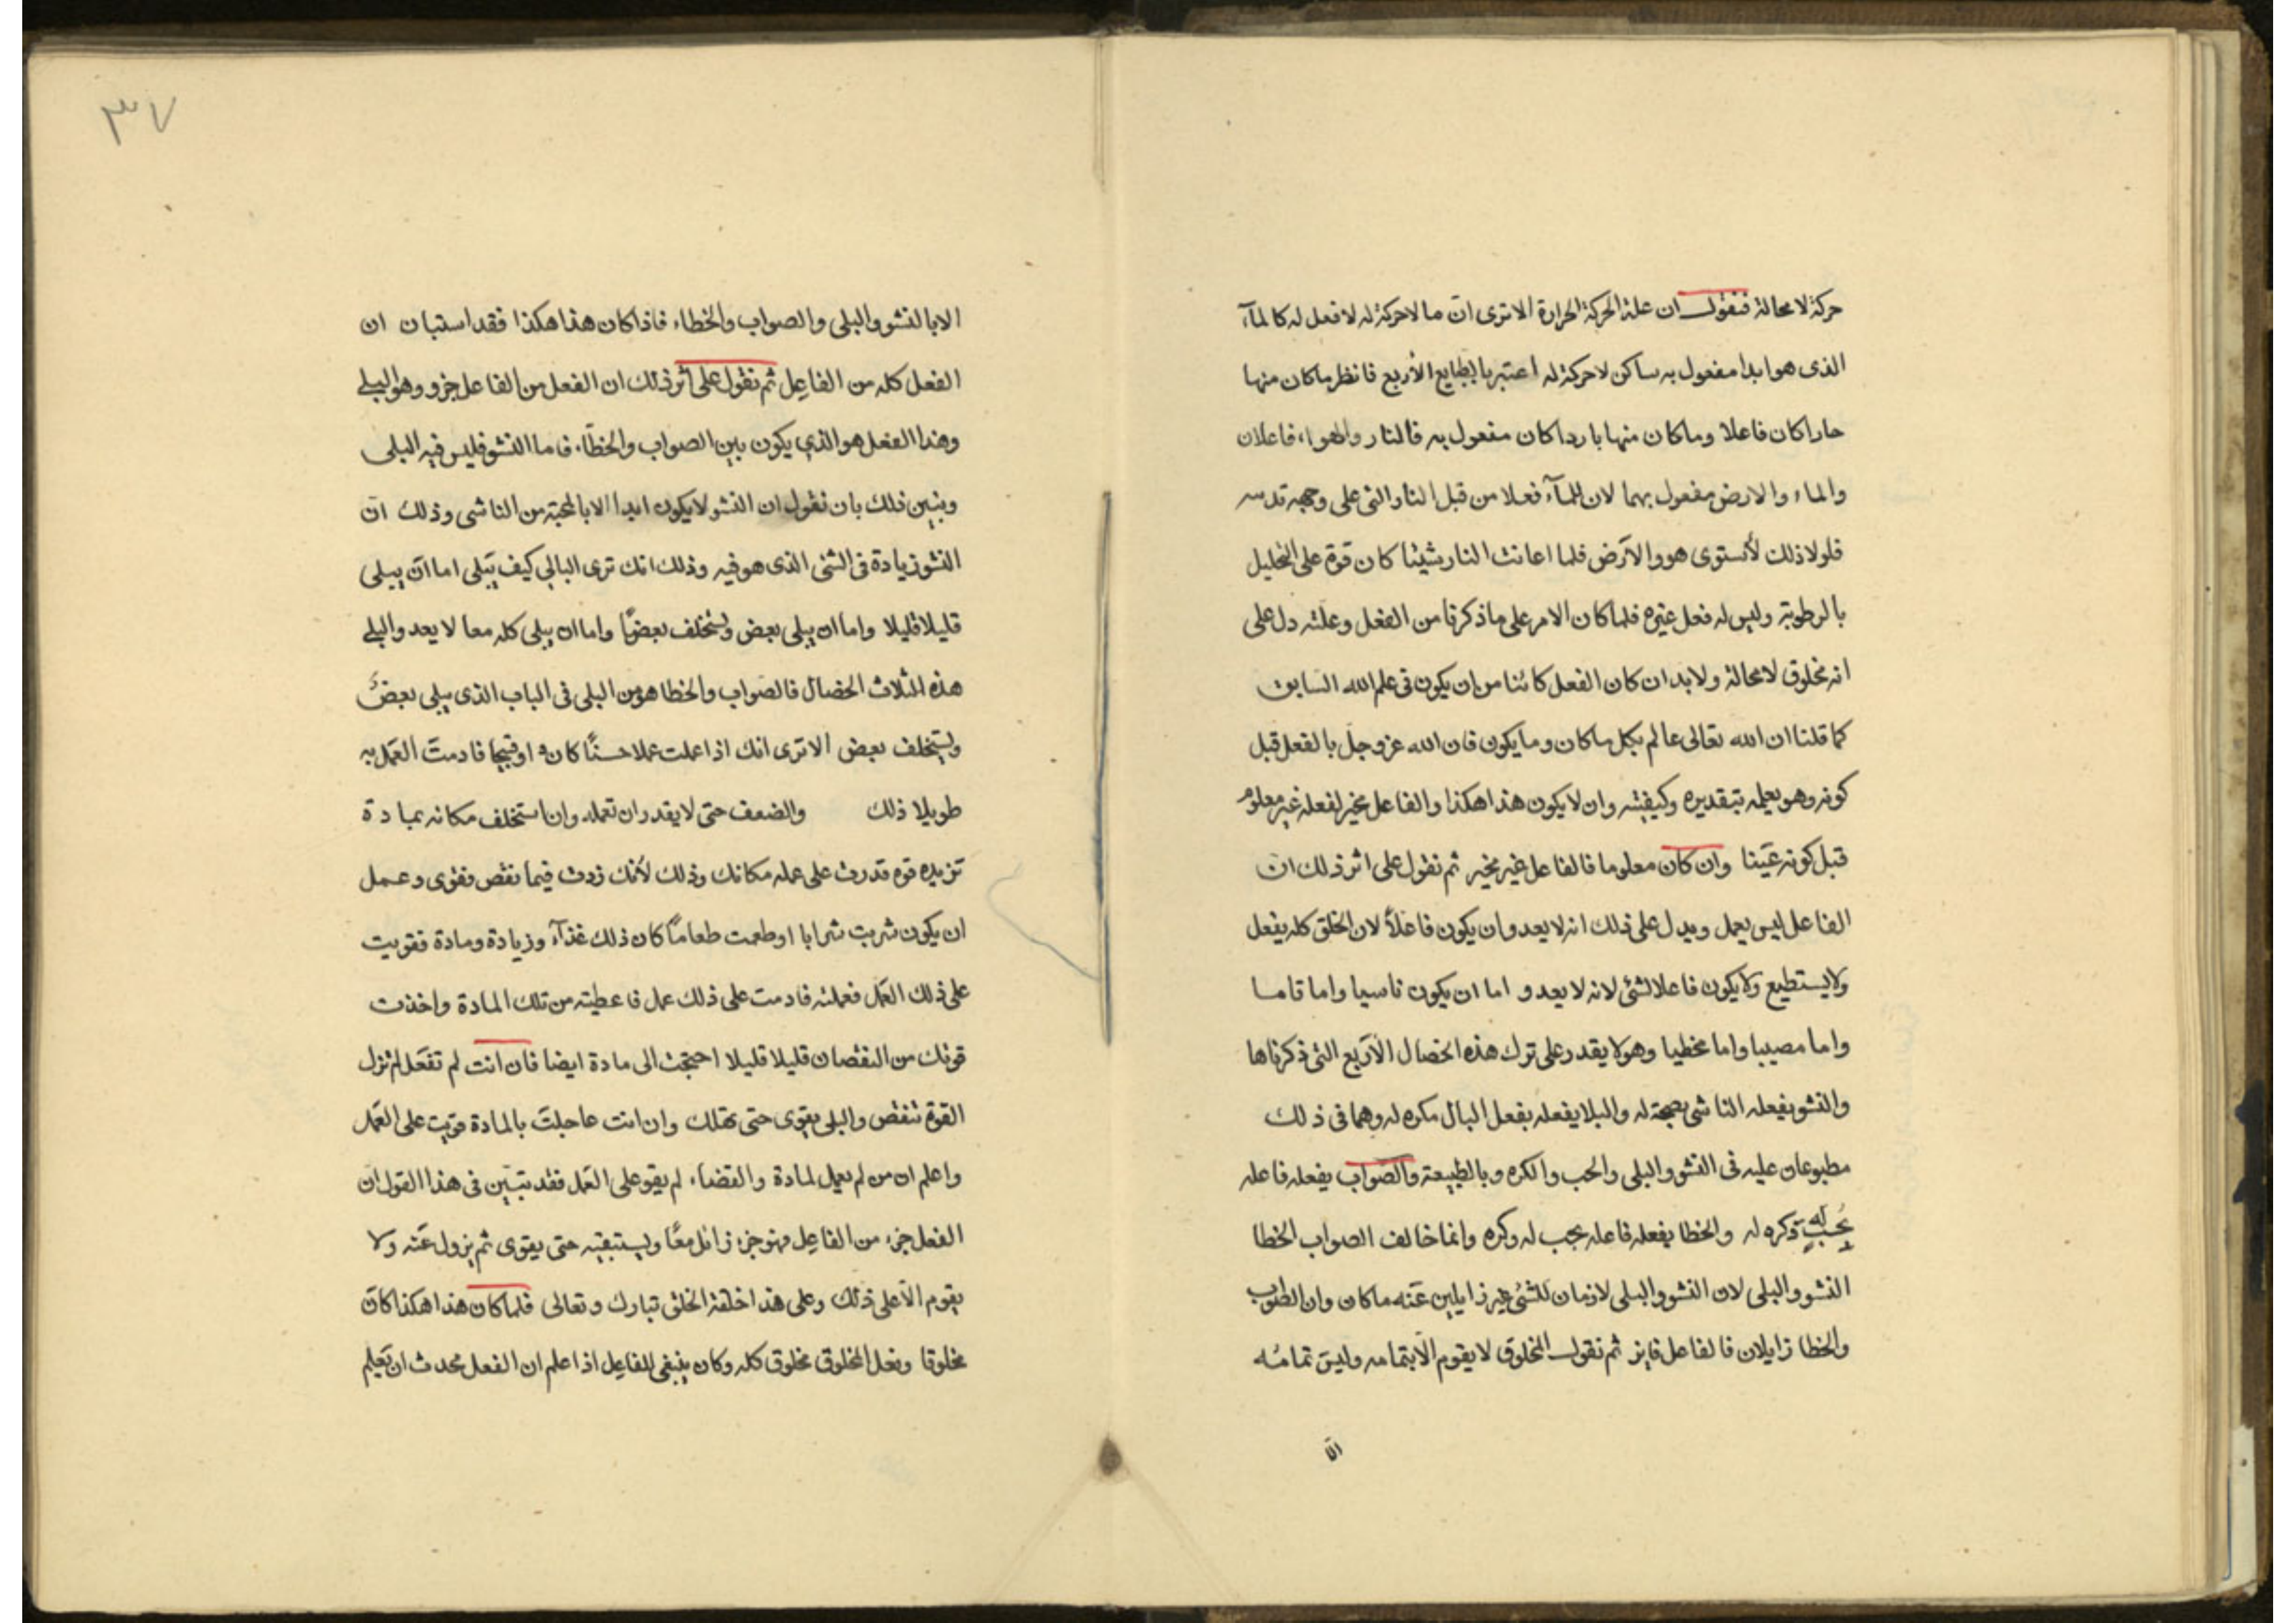 حركة لا محالة فنقول ان علة الحركة الحرارة الا ترى انّ ما لا حركة له لا فعل له كالمآء
الذى هو ابدا مفعول به ساكن لا حركة له اعتبر بالطبايع الأربع فانظر ما كان منها
حارا كان فاعلا وما كان منها باردا كان مفعول به فالنار والهواء فاعلان
والماء والارض مفعول بهما لان للمآء فعلا من قبل النار التى على وجهه
فلولا ذلك لأستوى هو والارض فلما اعانت النار شيئا كان قوة على التحليل
بالرطوبة وليس له فعل غيره فلما كان الامر على ما ذكرنا من الفعل وعلته دل على
انه مخلوق لا محالة ولا بد ان كان الفعل كائنا من ان يكون فى علم الله السابق
كما قلنا ان الله تعالى عالم بكل ما كان وما يكون فان الله عز وجل بالفعل قبل
كونه وهو يعمله بتقديره وكيفيته وان لا يكون هذا هكذا والفاعل مخير لفعله غير معلوم
قبل كونه عينا وان كان معلوما فالفاعل غير مخير ثم نقول على اثر ذلك ان
الفاعل ليس يعمل ويدل على ذلك انه لا يعدو ان يكون فاعلاً لان الخلق كله يفعل
ولا يستطيع ولا يكون فاعلا لشئ لانه لا يعدو اما ان يكون ناسيا واما تاما
واما مصيبا واما مخطيا وهو لا يقدر على ترك هذه الخصال الأربع التى ذكرناها
والنشو يفعله الناشى بمحبة له والبلا يفعله بفعل البال مكره له وهما فى ذلك
مطبوعان عليه فى النشو والبلى والحب والكره وبالطبيعة والصواب يفعله فاعله
بحب له وكره له والخطا يفعله فاعله بحب له وكره وانما خالف الصواب الخطا
النشو والبلى لان النشو والبلى لازمان للشئ غير زايلين عنه ما كان وان الصواب
والخطا زايلان فالفاعل فايز ثم نقول المخلوق لا يقوم الا بتمامه وليس تمامه
الا
٣٧
الا بالنشو والبلى والصواب والخطاء فاذا كان هذا هكذا فقد استبان ان
الفعل كله من الفاعل ثم نقول على اثر ذلك ان الفعل من الفاعل جزو وهو البلى
وهذا الفعل هو الذي يكون بين الصواب والخطآء فاما النشو فليس فيه البلى
وبنين ذلك بان نقول ان النشو لا يكون ابدا الا بالمحبة من الناشى وذلك انّ
النشو زيادة فى الشئ الذى هو فيه وذلك انك ترى البالي كيف يبلى اما ان يبلى
قليلا قليلا واما ان يبلى بعض ويستخلف بعضًا واما ان يبلى كله معا لا يعدو البلى
هذه الثلاث الخصال فالصواب والخطا هو من البلى فى الباب الذى يبلى بعضٌ
ويستخلف بعض الا ترى انك اذا عملت عملا حسنًا كان او قبيحا فادمت العمل به
طويلا ذلك والضعف حتى لا يقدر ان تعمله وان استخلف مكانه بمادة
تزيده قوة قدرت على عمله مكانك وذلك لأنك زدت فيما نقص فقوى وعمل
ان يكون شربت شرابا او طعمت طعامًا كان ذلك غذآء وزيادة ومادة فقويت
على ذلك العمل فعملته فادمت على ذلك عمل فاعطيته من تلك المادة واخذت
قوتك من النقصان قليلا قليلا احتجت الى مادة ايضا فان انت لم تفعل لم تزل
القوة تنقص والبلى يقوى حتى تهلك وان انت عاجلت بالمادة قويت على العمل
واعلم ان من لم يعمل لمادة والقضاء لم يقو على العمل فقد تبين فى هذا القول ان
الفعل جزء من الفاعل فهو جزء زائل معًا ويستبقيه حتى يقوى ثم يزول عنه ولا
يقوم الّا على ذلك وعلى هذا خلقة الخلق تبارك وتعالى فلما كان هذا هكذا كان
مخلوقا وفعل المخلوق مخلوق كله وكان ينبغى للفاعل اذا علم ان الفعل محدث ان يعلم